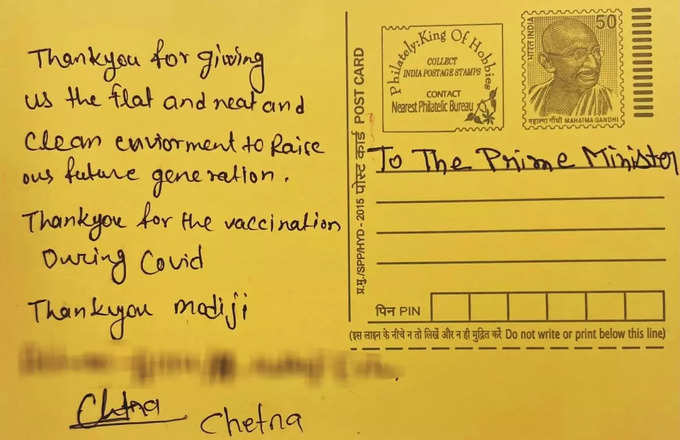 Thankyou for giving
us the flat and neat and
clean enviorment to Raise
our future generation.
Thankyou for the vaccination
During Covid
Thankyou modiji
Chetna
Chetna
Philately: King Of Hobbies
COLLECT
INDIA POSTAGE STAMPS
CONTACT
Nearest Philatelic Bureau
भारत INDIA
50
महात्मा गाँधी MAHATMA GANDHI
प्र.मु./SPP/HYD - 2015 पोस्ट कार्ड POST CARD
To The Prime Minister
पिन PIN
(इस लाइन के नीचे न तो लिखें और न ही मुद्रित करें Do not write or print below this line)